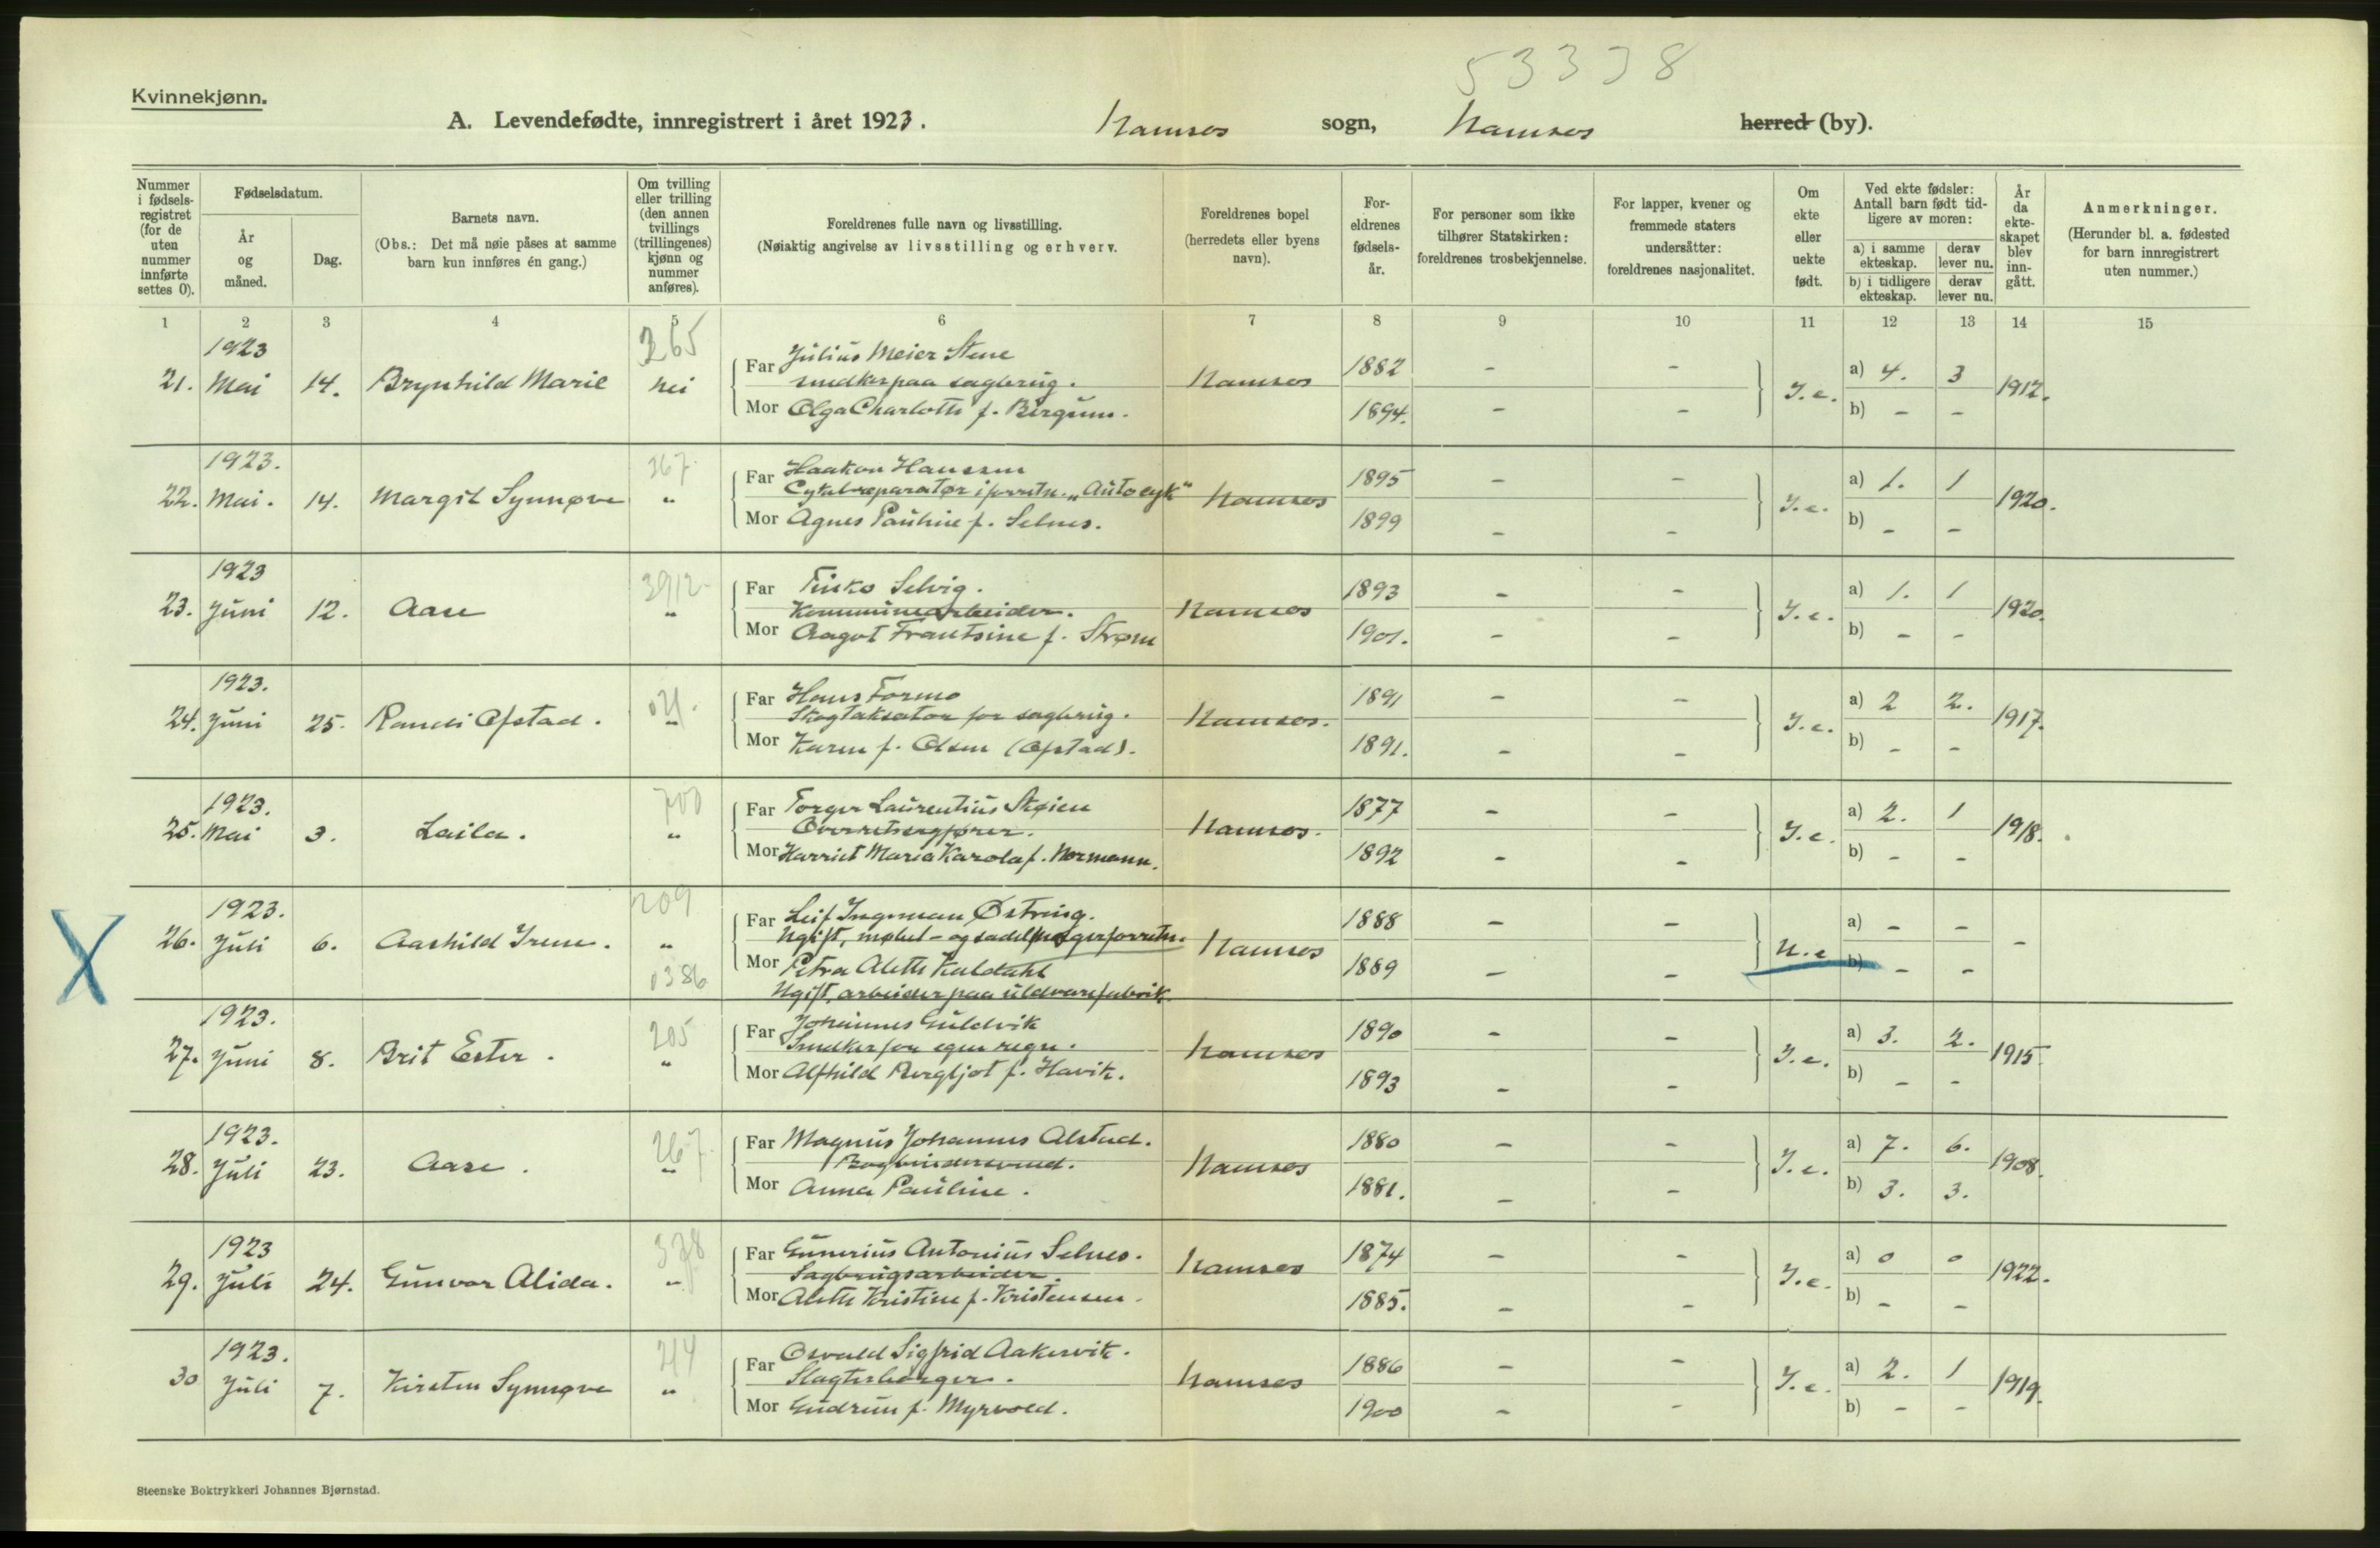 53338
Kvinnekjønn.
A. Levendefødte, innregistrert i året 1923. Namsos sogn, Namsos herred (by).
Nummer i fødsels-registret (for de uten nummer innførte settes 0).
Fødselsdatum.
År og måned.
Dag.
Barnets navn.
(Obs.: Det må nøie påses at samme barn kun innføres én gang.)
Om tvilling eller trilling (den annen tvillings (trillingenes) kjønn og nummer anføres).
Foreldrenes fulle navn og livsstilling.
(Nøiaktig angivelse av livsstilling og erhverv.
Foreldrenes bopel (herredets eller byens navn).
For-eldrenes fødsels-år.
For personer som ikke tilhører Statskirken: foreldrenes trosbekjennelse.
For lapper, kvener og fremmede staters undersåtter: foreldrenes nasjonalitet.
Om ekte eller uekte født.
Ved ekte fødsler: Antall barn født tid-ligere av moren:
a) i samme ekteskap. derav lever nu.
b) i tidligere ekteskap. derav lever nu.
År da ekte-skapet blev inn-gått.
Anmerkninger.
(Herunder bl. a. fødested for barn innregistrert uten nummer.)
1 2 3 4 5 6 7 8 9 10 11 12 13 14 15
1923 265 Far Julius Meier Stene 1882 - - a) 4. 3
21. Mai 14. Brynhild Marie nei snedker paa sagbrug. Namsos I.e. 1912.
Mor Olga Charlotte f. Bergum. 1894. - - b) - -
1923. 367 Far Haakon Hanssen 1895 - - a) 1. 1
22. Mai. 14. Margit Synnøve " Cykelreparatør i forretn. „Autocyk" Namsos I.e. 1920.
Mor Agnes Pauline f. Selnes. 1899 - - b) - -
1923 Far Selvig. 1893 - - a) 1. 1
23. Juni 12. Aase " Kommunearbeider. Namsos I.e. 1920.
Mor Aagot Frantsine f. Strøm 1901. - - b) - -
1923. Far Hans Formo 1891 - - a) 2 2.
24. Juni 25. Randi Ofstad. " Skogtaksator for sagbrug. Namsos. I.e. 1917.
Mor Karen f. Olsen (Ofstad). 1891. - - b) - -
1923. 700 Far Torger Laurentius Skøien 1877 - - a) 2. 1
25. Mai 3. Laila. " Overretssagfører. Namsos. I.e. 1918.
Mor Harriet Maria Karola f. Normann. 1892 - - b) - -
1923. 209 Far Leif Ingeman Østring. 1888 - - a) - -
X 26. Juli 6. Aashild Irene. " Ugift, møbel- og sadelmagerforretn. Namsos U.e. -
0386 Mor Petra Alette Kaldahl 1889 - - b) - -
Ugift, arbeider paa uldvarefabrik.
1923. 205 Far Johannes Guldvik 1890 - - a) 3. 2.
27. Juni 8. Brit Ester. " Snedker for egen regn. Namsos I.e. 1915.
Mor Alfhild Bergljot f. Havik. 1893 - - b) - -
1923. 267 Far Magnus Johannes Alstad. 1880 - - a) 7. 6.
28. Juli 23. Aase. " Bogbindersvend. Namsos I.e. 1908.
Mor Anna Pauline. 1881. - - b) 3. 3.
1923 Far Gunerius Antonius Selnes. 1874 - - a) 0 0
29. Juli 24. Gunvor Alida. " Sagbrugsarbeider. Namsos I.e. 1922.
Mor Alette Kristine f. Kristensen. 1885. - - b) - -
1923. Far Osvald Sigfrid Aakervik. 1886 - - a) 2. 1
30 Juli 7. Kirsten Synnøve " Slagterborger. Namsos I.e. 1919.
Mor Gudrun f. Myrvold. 1900 - - b) - -
Steenske Boktrykkeri Johannes Bjørnstad.